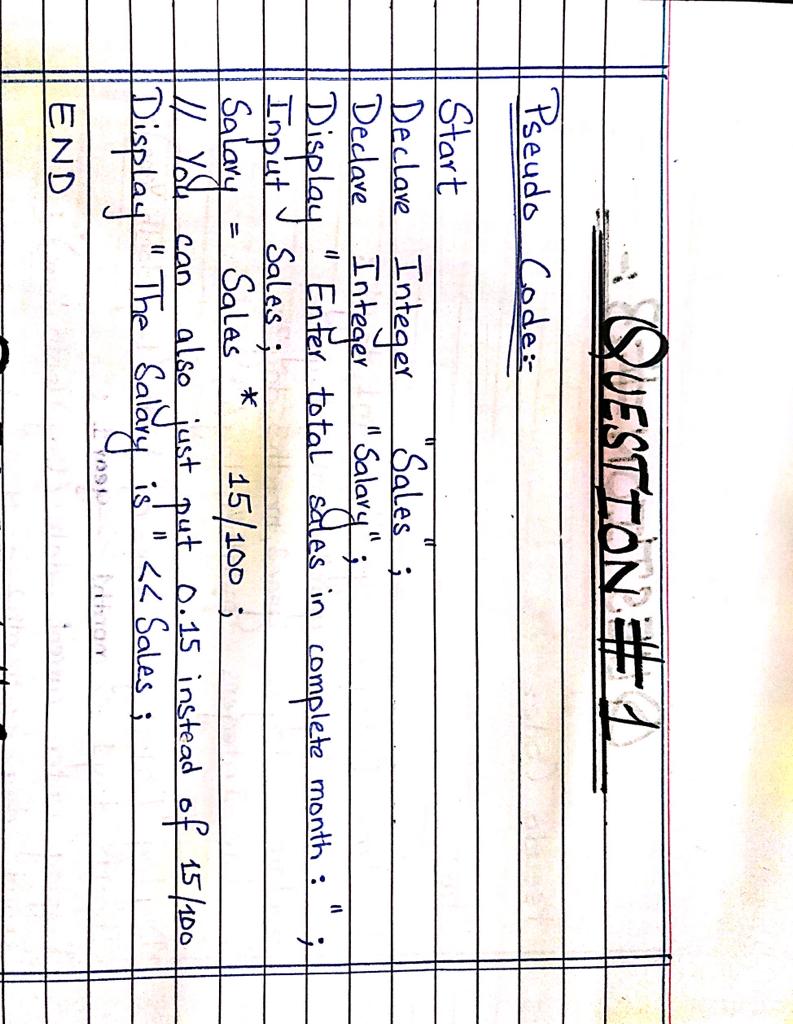 QUESTION # 1
Pseudo Code:-
Start
Declare Integer "Sales";
Declare Integer "Salary";
Display "Enter total sales in complete month: ";
Input Sales;
Salary = Sales * 15/100;
// You can also just put 0.15 instead of 15/100
Display "The Salary is" << Sales;
END